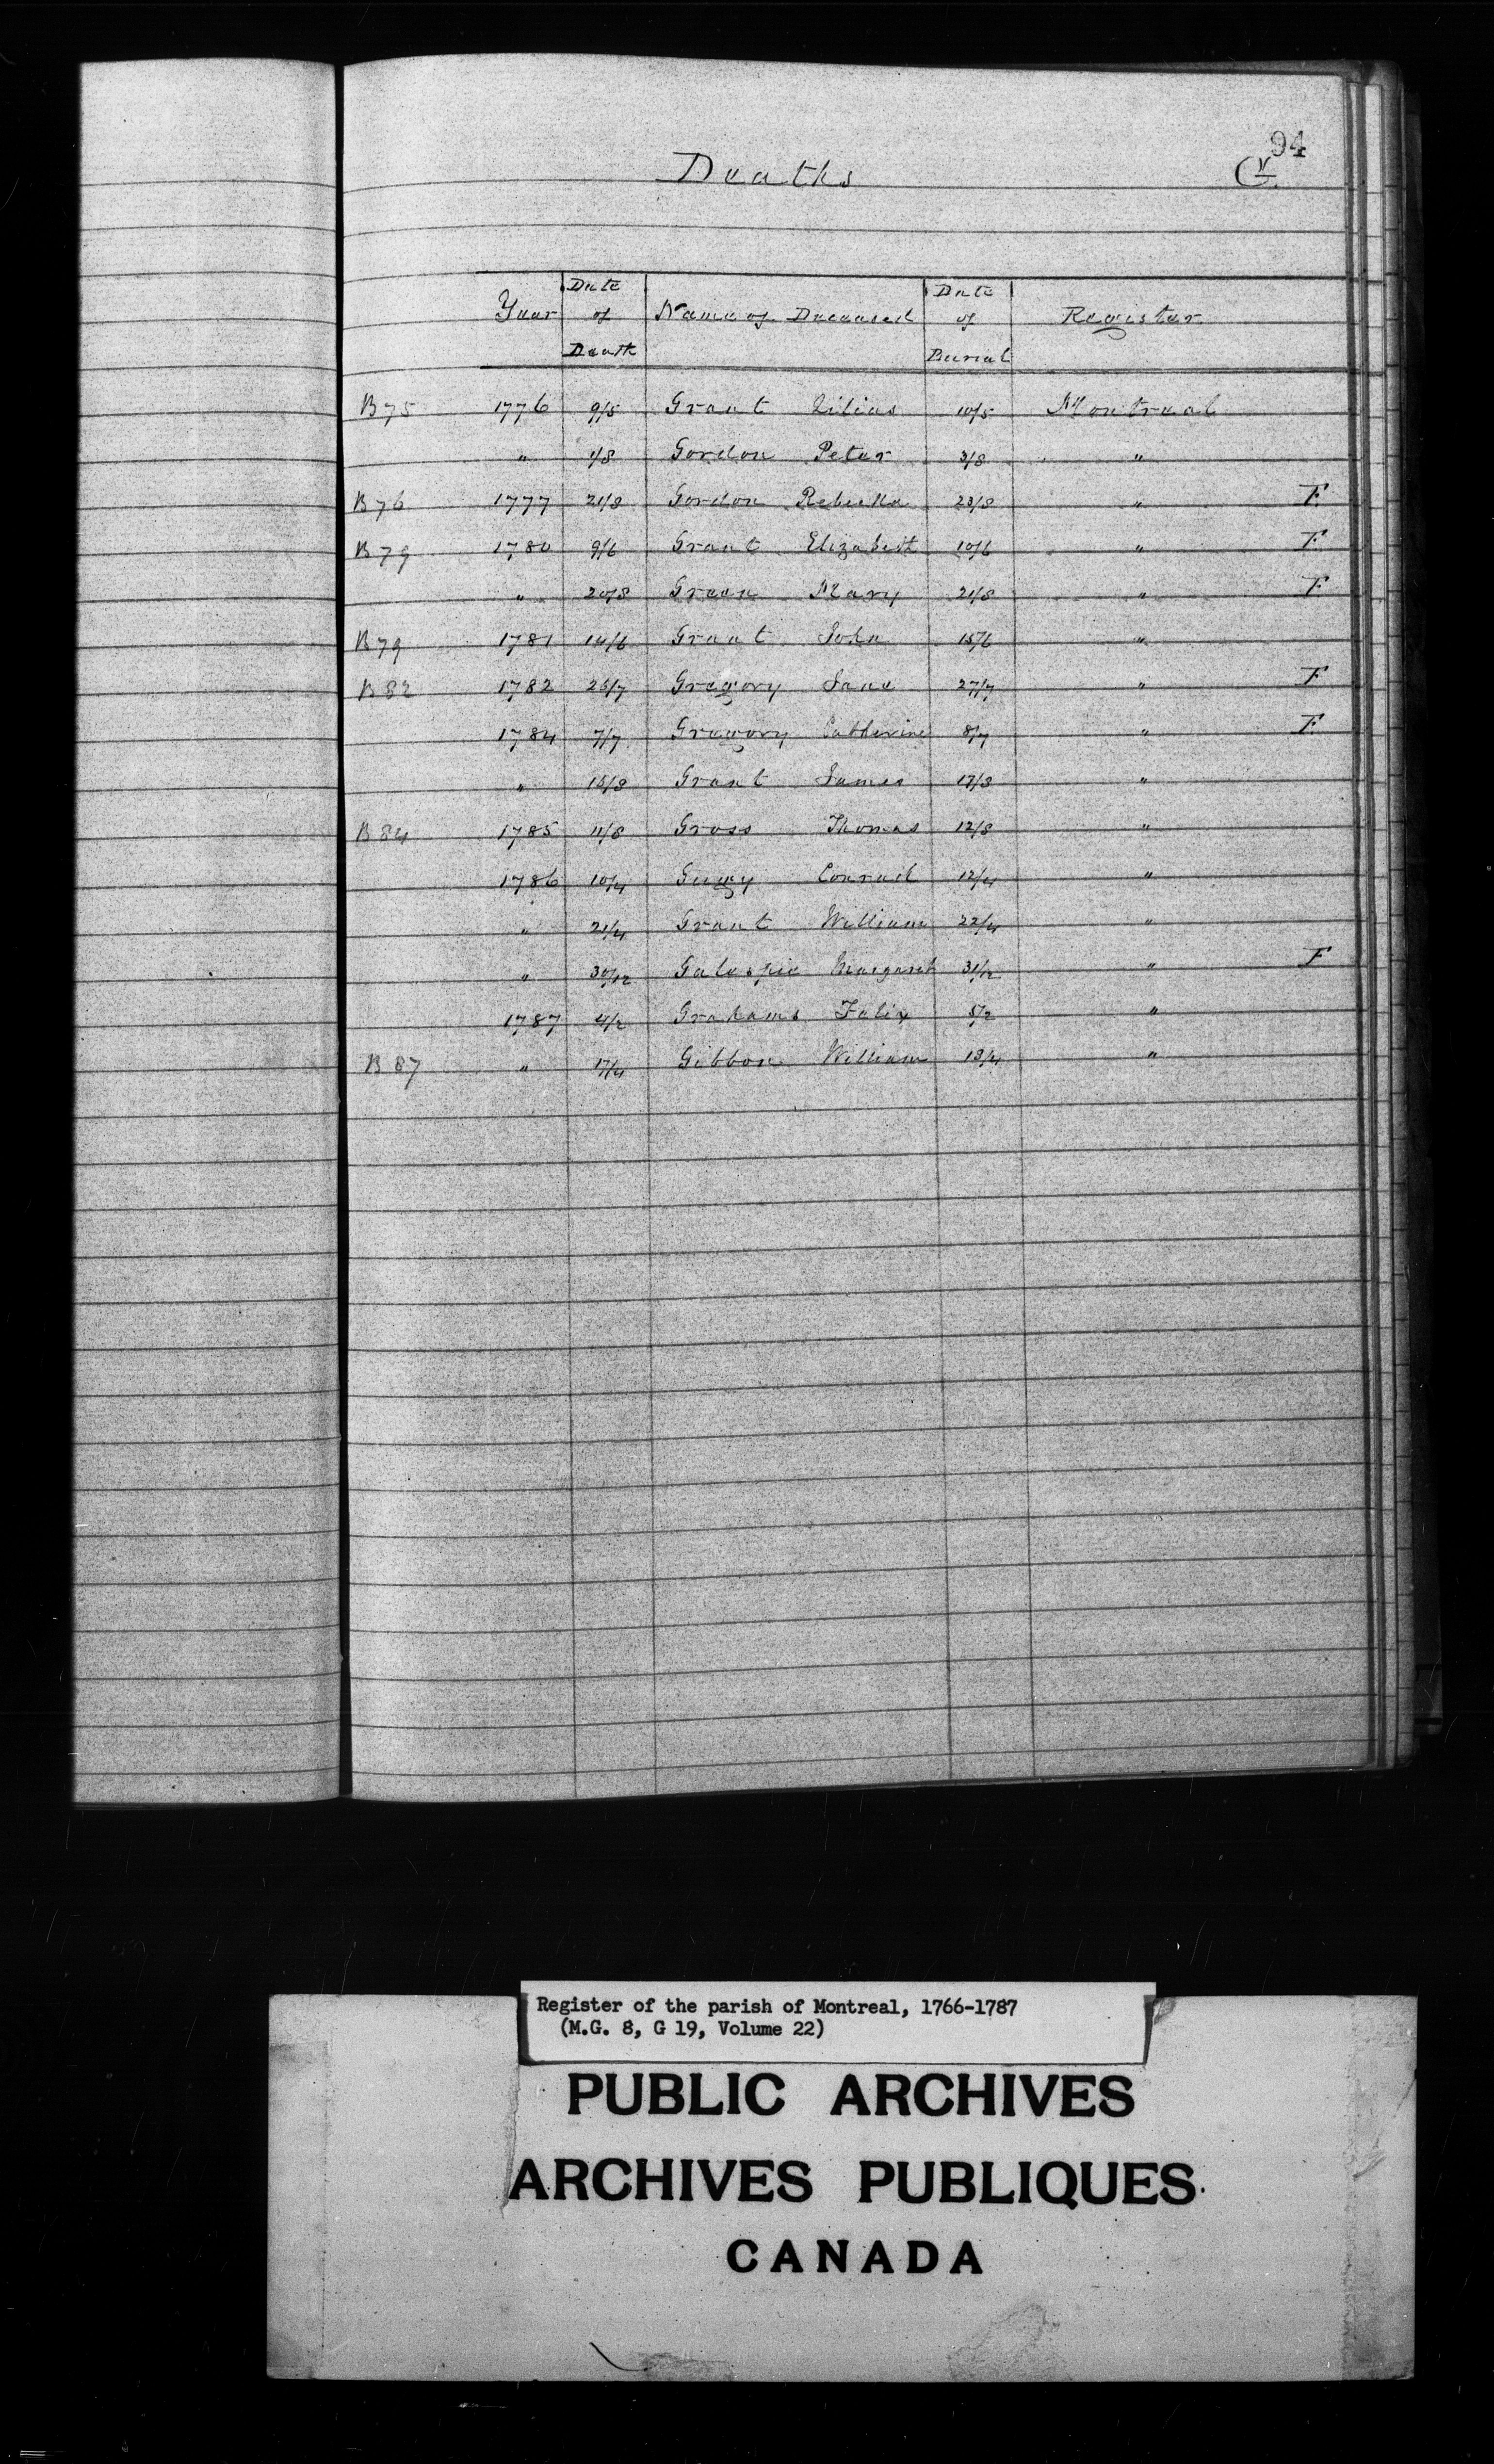 94
Deaths G V
Year Date of Death Name of Deceased Date of Burial Register
B 75 1776 9/5 Grant Lilias 10/5 Montreal
" 1/8 Gordon Peter 3/8 "
B 76 1777 21/8 Gordon Rebecka 23/8 " F
B 79 1780 9/6 Grant Elizabeth 10/6 " F
" 20/8 Green Mary 21/8 " F
B 79 1781 14/6 Grant John 15/6 "
B 82 1782 26/7 Gregory Jane 27/7 " F
1784 7/7 Gregory Catherine 8/7 " F
" 15/8 Grant James 17/8 "
B 84 1785 11/8 Gross Thomas 12/8 "
1786 10/4 Gugy Conrad 12/4 "
" 21/4 Grant William 22/4 "
" 30/12 Galespie Margareth 31/12 " F
1787 4/2 Grahams Felix 5/2 "
B 87 " 17/4 Gibbon William 18/4 "
Register of the parish of Montreal, 1766-1787
(M.G. 8, G 19, Volume 22)
PUBLIC ARCHIVES
ARCHIVES PUBLIQUES
CANADA